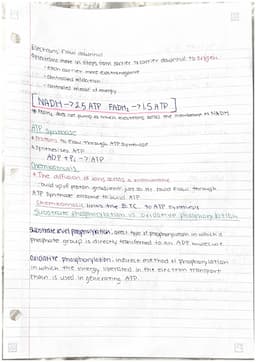 Electrons Flow downhill
electrons move in steps from carrier to carrier downhill to oxygen
- each carrier more electronegative
- controlled oxidation
- controlled release of energy
[NADH -> 2.5 ATP FADH₂ -> 1.5 ATP]
* FADH₂ does not pump as much electrons across the membrane as NADH
ATP Synthase
* protons to Flow through ATP synthase
* synthesizes ATP
ADP + Pi -> ATP
Chemiosmosis
* The diffusion of ions across a membrane
build up of proton gradient just so H+ could flow through
ATP synthase enzyme to build ATP
Chemiosmosis links the ETC to ATP synthesis
Substrate phosphorylation vs. oxidative phosphorylation
Substrate level phosphorylation, direct type of phosphorylation in which a
phosphate group is directly transferred to an ADP molecule.
Oxidative phosphorylation, indirect method of phosphorylation
in which the energy liberated in the electron transport
chain is used in generating ATP.